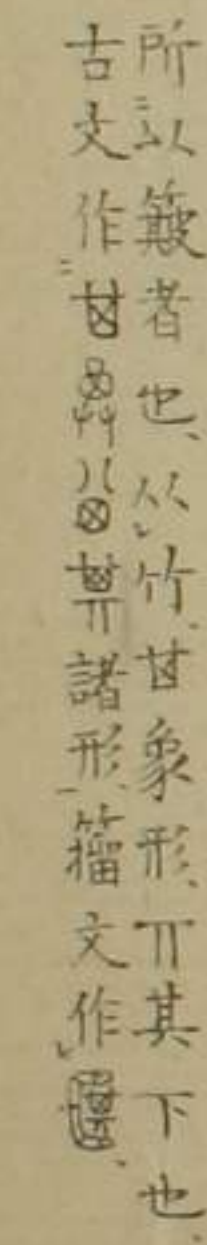 所以簸者也、从竹、𠀠象形、丌其下也、
古文作𠀠諸形、籀文作